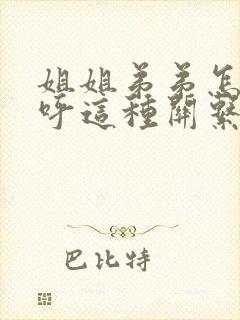 姐姐弟弟怎
呼這種關繫
巴比特